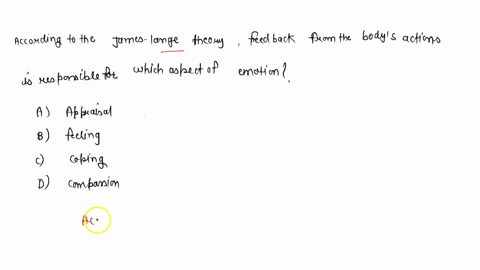 According to the James-lange theory, feedback from the body's actions
is responsible for which aspect of emotion?
A) Appraisal
B) feeling
C) coping
D) compassion
Ac